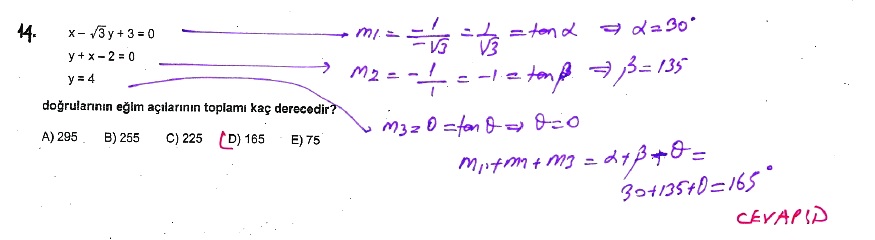 14.
x − √3y + 3 = 0
y + x − 2 = 0
y = 4
doğrularının eğim açılarının toplamı kaç derecedir?
A) 295 B) 255 C) 225 D) 165 E) 75
m1 = −1/−√3 = 1/√3 = tan α ⇒ α = 30°
m2 = −1/1 = −1 = tan β ⇒ β = 135
m3 = 0 = tan θ ⇒ θ = 0
m1, + m + m3 = α + β + θ =
30 + 135 + 0 = 165°
CEVAP: D